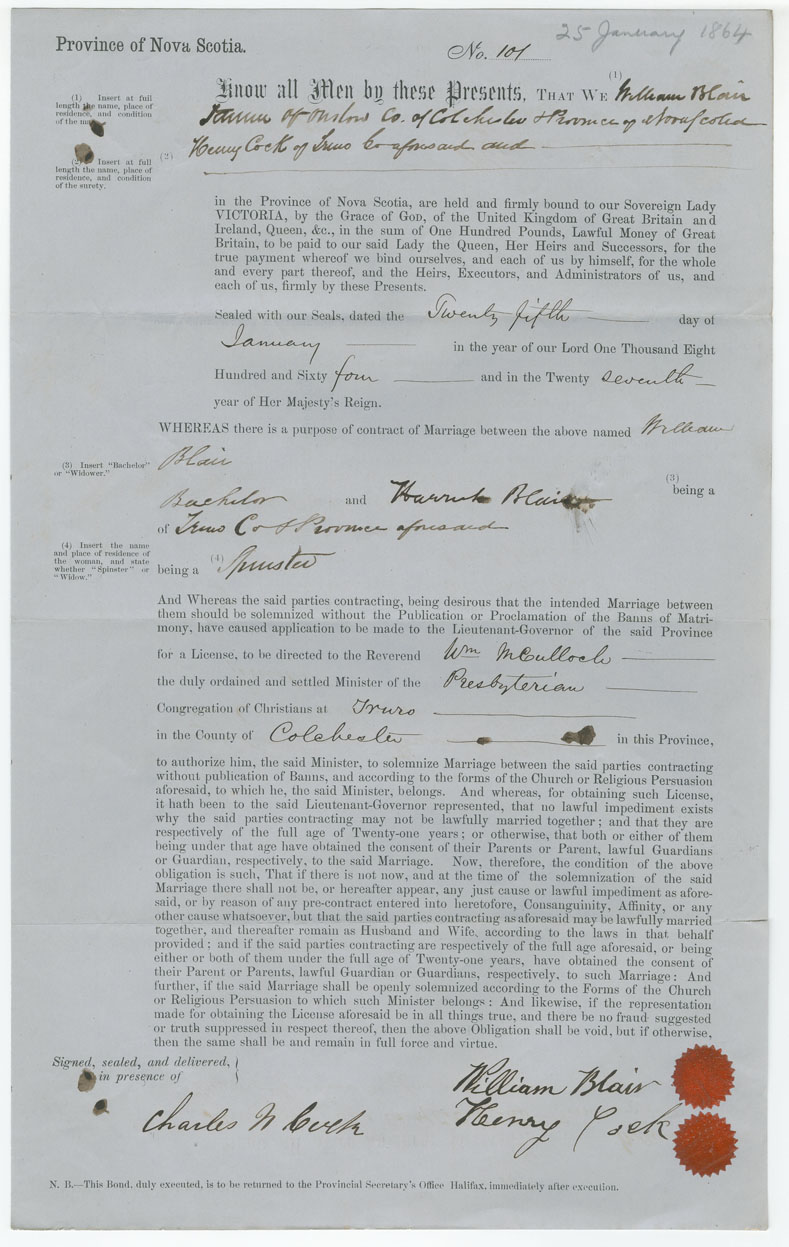 25 January 1864
Province of Nova Scotia.
No. 101
(1) Insert at full
length the name, place of
residence, and condition
of the man.
Know all Men by these Presents, THAT WE (1) William Blair
Farmer of Onslow Co. of Colchester & Province of Nova Scotia
(2) Henry Cock of Truro Co aforesaid and
(2) Insert at full
length the name, place of
residence, and condition
of the surety.
in the Province of Nova Scotia, are held and firmly bound to our Sovereign Lady
VICTORIA, by the Grace of GOD, of the United Kingdom of Great Britain and
Ireland, Queen, &c., in the sum of One Hundred Pounds, Lawful Money of Great
Britain, to be paid to our said Lady the Queen, Her Heirs and Successors, for the
true payment whereof we bind ourselves, and each of us by himself, for the whole
and every part thereof, and the Heirs, Executors, and Administrators of us, and
each of us, firmly by these Presents.
Sealed with our Seals, dated the Twenty fifth day of
January in the year of our Lord One Thousand Eight
Hundred and Sixty four and in the Twenty seventh
year of Her Majesty's Reign.
WHEREAS there is a purpose of contract of Marriage between the above named William
Blair (3) being a
(3) Insert "Bachelor"
or "Widower."
Bachelor and Blair
of Truro Co & Province aforesaid
(4) Insert the name
and place of residence of
the woman, and state
whether "Spinster" or
"Widow."
being a (4) Spinster
And Whereas the said parties contracting, being desirous that the intended Marriage between
them should be solemnized without the Publication or Proclamation of the Banns of Matri-
mony, have caused application to be made to the Lieutenant-Governor of the said Province
for a License, to be directed to the Reverend Wm McCulloch
the duly ordained and settled Minister of the Presbyterian
Congregation of Christians at Truro
in the County of Colchester in this Province,
to authorize him, the said Minister, to solemnize Marriage between the said parties contracting
without publication of Banns, and according to the forms of the Church or Religious Persuasion
aforesaid, to which he, the said Minister, belongs. And whereas, for obtaining such License,
it hath been to the said Lieutenant-Governor represented, that no lawful impediment exists
why the said parties contracting may not be lawfully married together; and that they are
respectively of the full age of Twenty-one years; or otherwise, that both or either of them
being under that age have obtained the consent of their Parents or Parent, lawful Guardians
or Guardian, respectively, to the said Marriage. Now, therefore, the condition of the above
obligation is such, That if there is not now, and at the time of the solemnization of the said
Marriage there shall not be, or hereafter appear, any just cause or lawful impediment as afore-
said, or by reason of any pre-contract entered into heretofore, Consanguinity, Affinity, or any
other cause whatsoever, but that the said parties contracting as aforesaid may be lawfully married
together, and thereafter remain as Husband and Wife, according to the laws in that behalf
provided; and if the said parties contracting are respectively of the full age aforesaid, or being
either or both of them under the full age of Twenty-one years, have obtained the consent of
their Parent or Parents, lawful Guardian or Guardians, respectively, to such Marriage: And
further, if the said Marriage shall be openly solemnized according to the Forms of the Church
or Religious Persuasion to which such Minister belongs: And likewise, if the representation
made for obtaining the License aforesaid be in all things true, and there be no fraud suggested
or truth suppressed in respect thereof, then the above Obligation shall be void, but if otherwise,
then the same shall be and remain in full force and virtue.
Signed, sealed, and delivered,
in presence of
William Blair
Charles N Cock Henry Cock
N. B.—This Bond, duly executed, is to be returned to the Provincial Secretary's Office Halifax, immediately after execution.